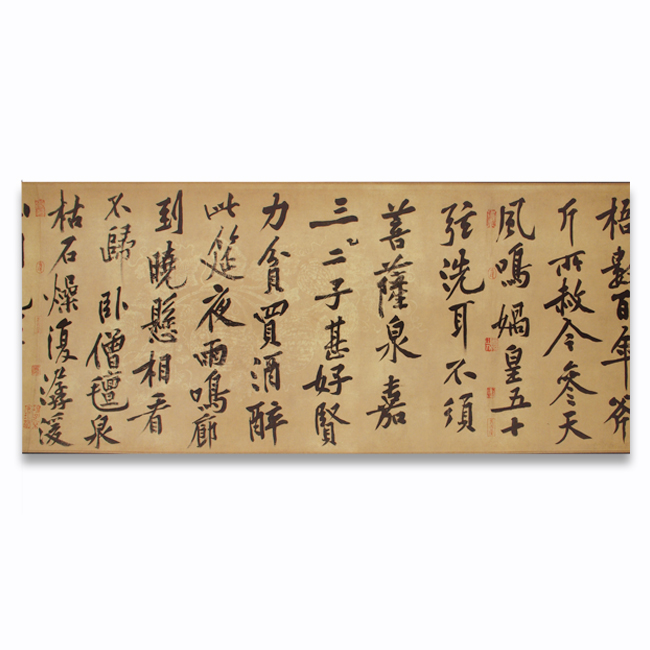 梧數百年斧
斤所赦今參天
風鳴媧皇五十
弦洗耳不須
菩薩泉嘉
三二子甚好賢
力貧買酒醉
此筵夜雨鳴廊
到曉懸相看
不歸臥僧氈泉
枯石燥復潺湲